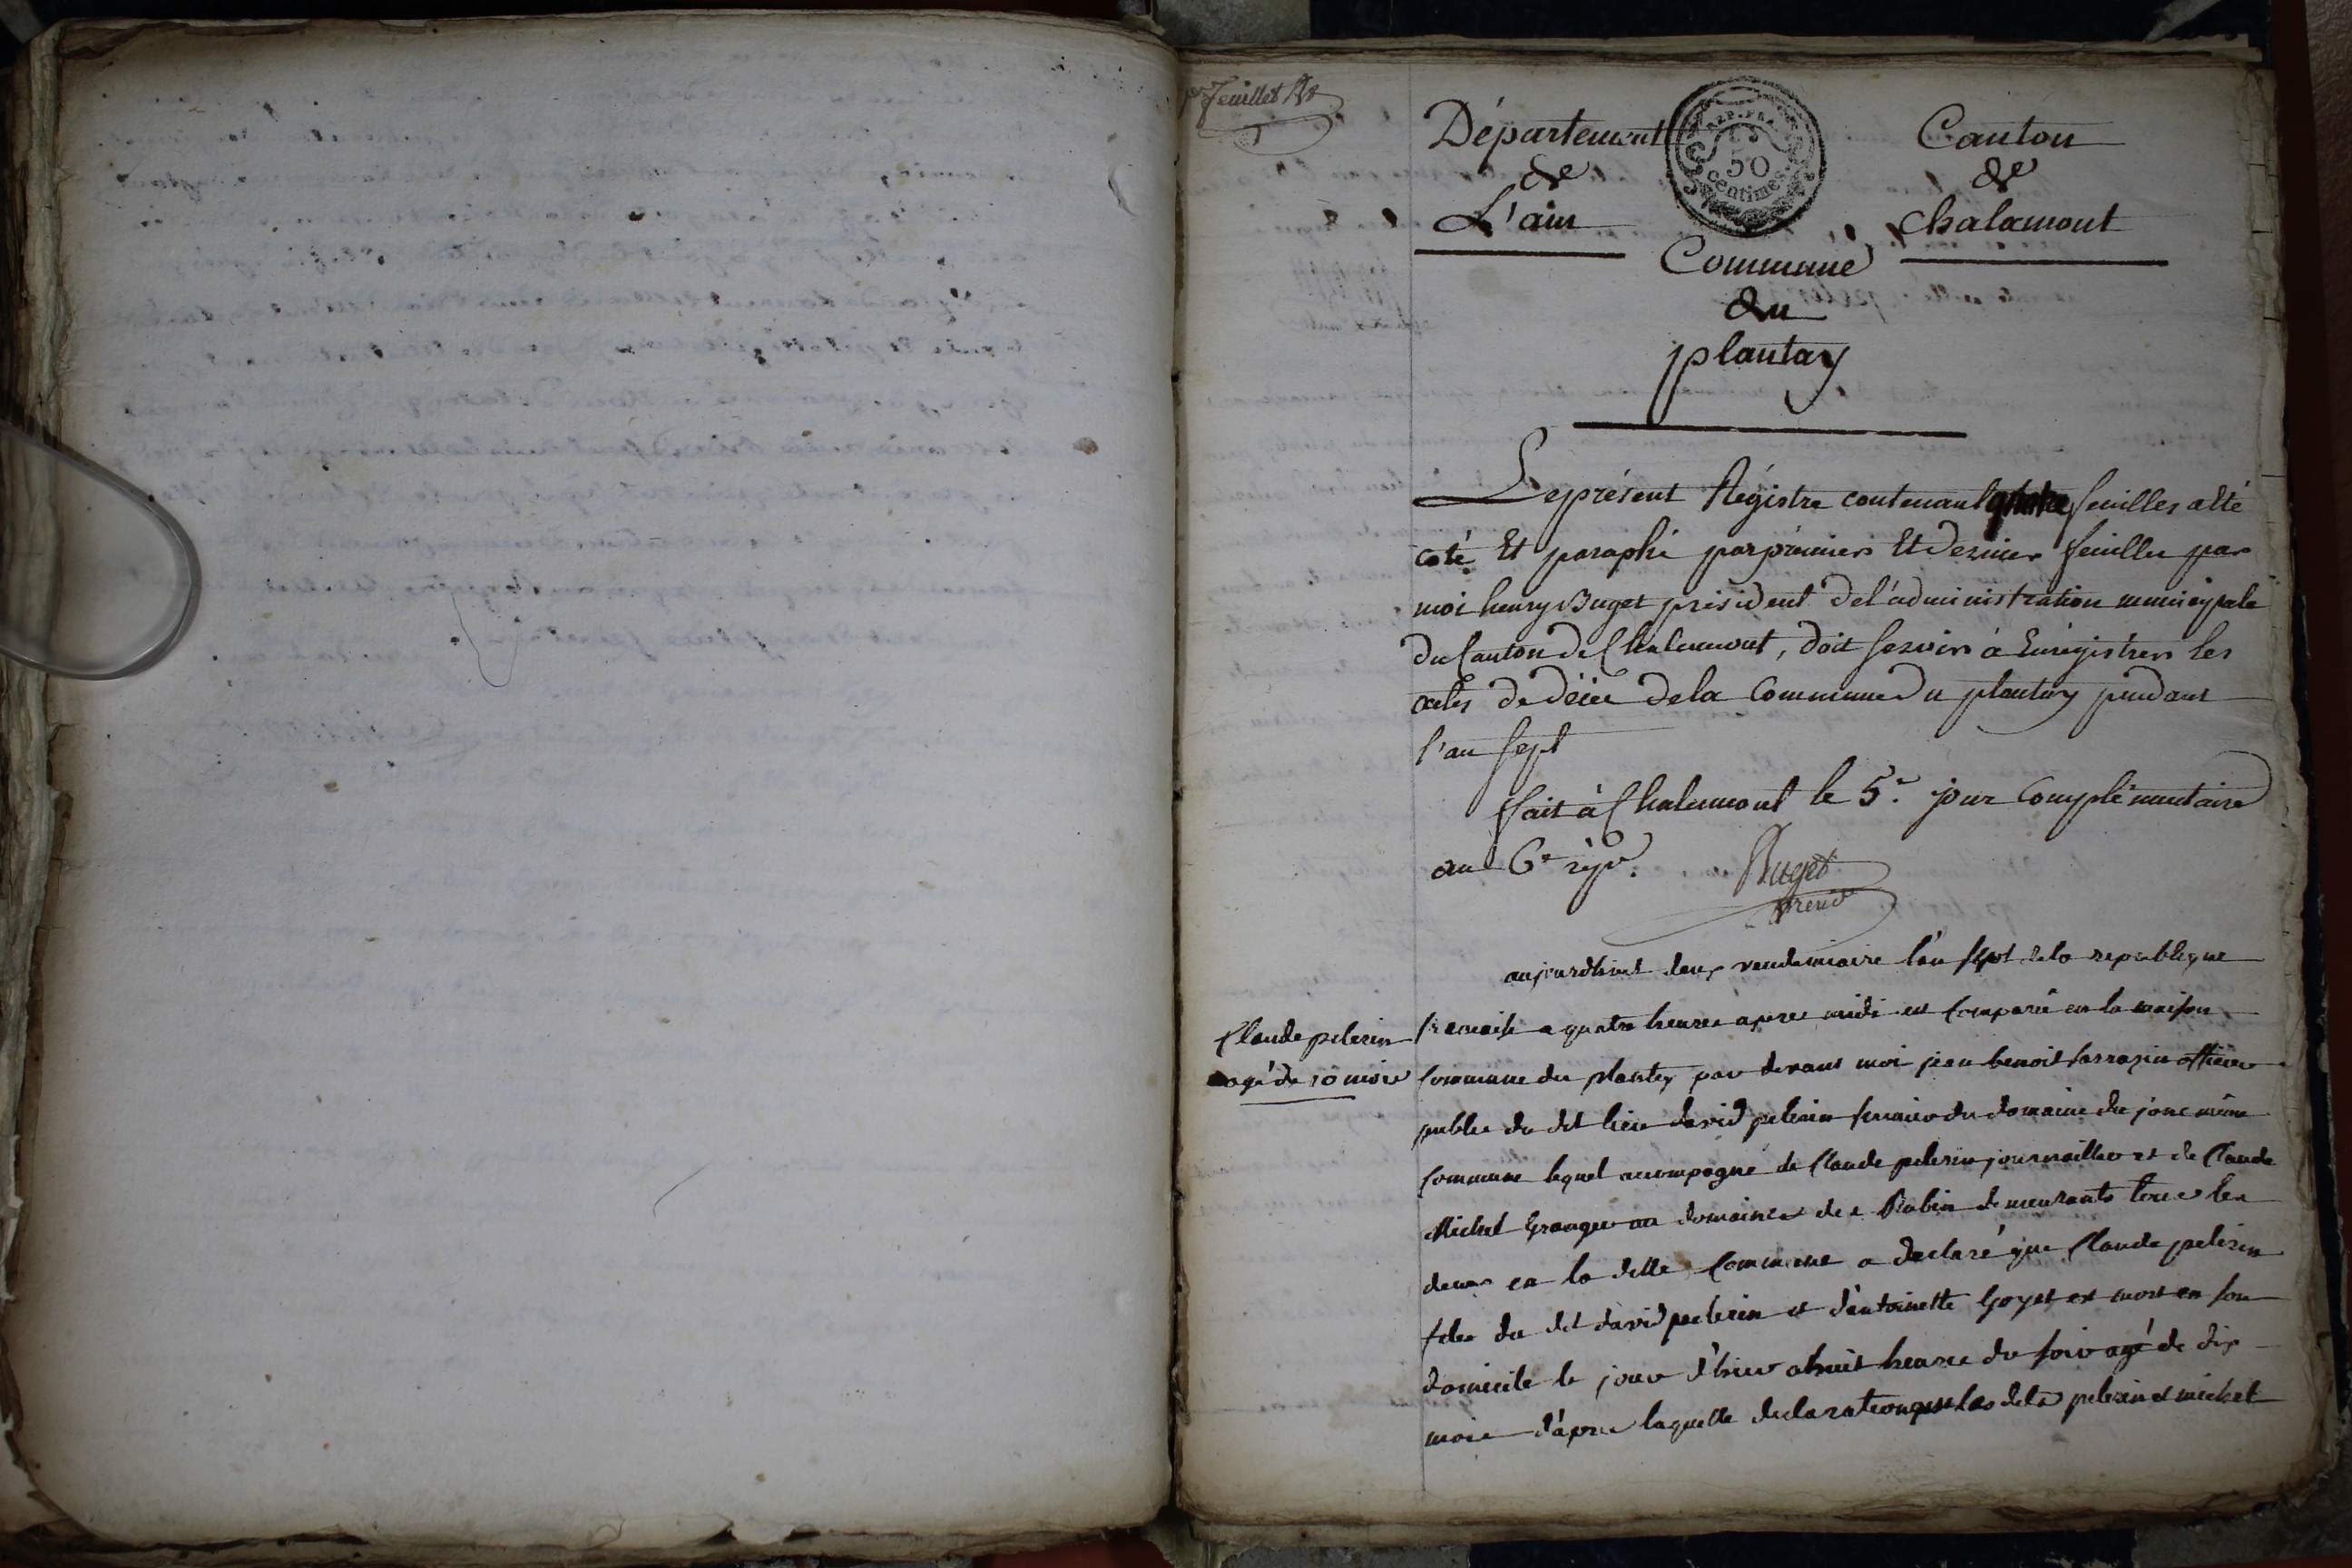 pr feuillet Bt
Département
de
L'ain
REP. FRA.
50
centimes
Canton
de
chalamont
Commune
du
plantay
Le présent Régistre contenant quatre feuilles a été
coté Et paraphé par prémier Et dernier feuillet par
moi henry Buget président de l'administration municipale
du Canton de Chalamont, doit servir à Enrégistrer les
actes de décée de la Commune du plantay pendant
l'an sept
fait à Chalamont le 5e. jour Complémentaire
an 6e rép.
Buget
présid
aujourdhuit deux vendemiaire l'an sept de la republique
Claude pelerin
agé de 10 mois
francaise a quatre heures apres midi est comparu en la maison
commune du plantey par devant moi jean benoit sarrazin officier
public du dit lieu david pelerin fermier du domaine du jonc même
commune lequel accompagné de Claude pelerin journaillier et de Claude
Michel Granger au domaine des Rabin demeurants tous les
deux en la ditte commune a declaré que Claude pelerin
fils du dit david pelerin et d'antoinette Goyet est mort en son
domicile le jour d'hier a huit heures du soir agé de dix
mois d'apres laquelle declaration que les dits pelerin et michel